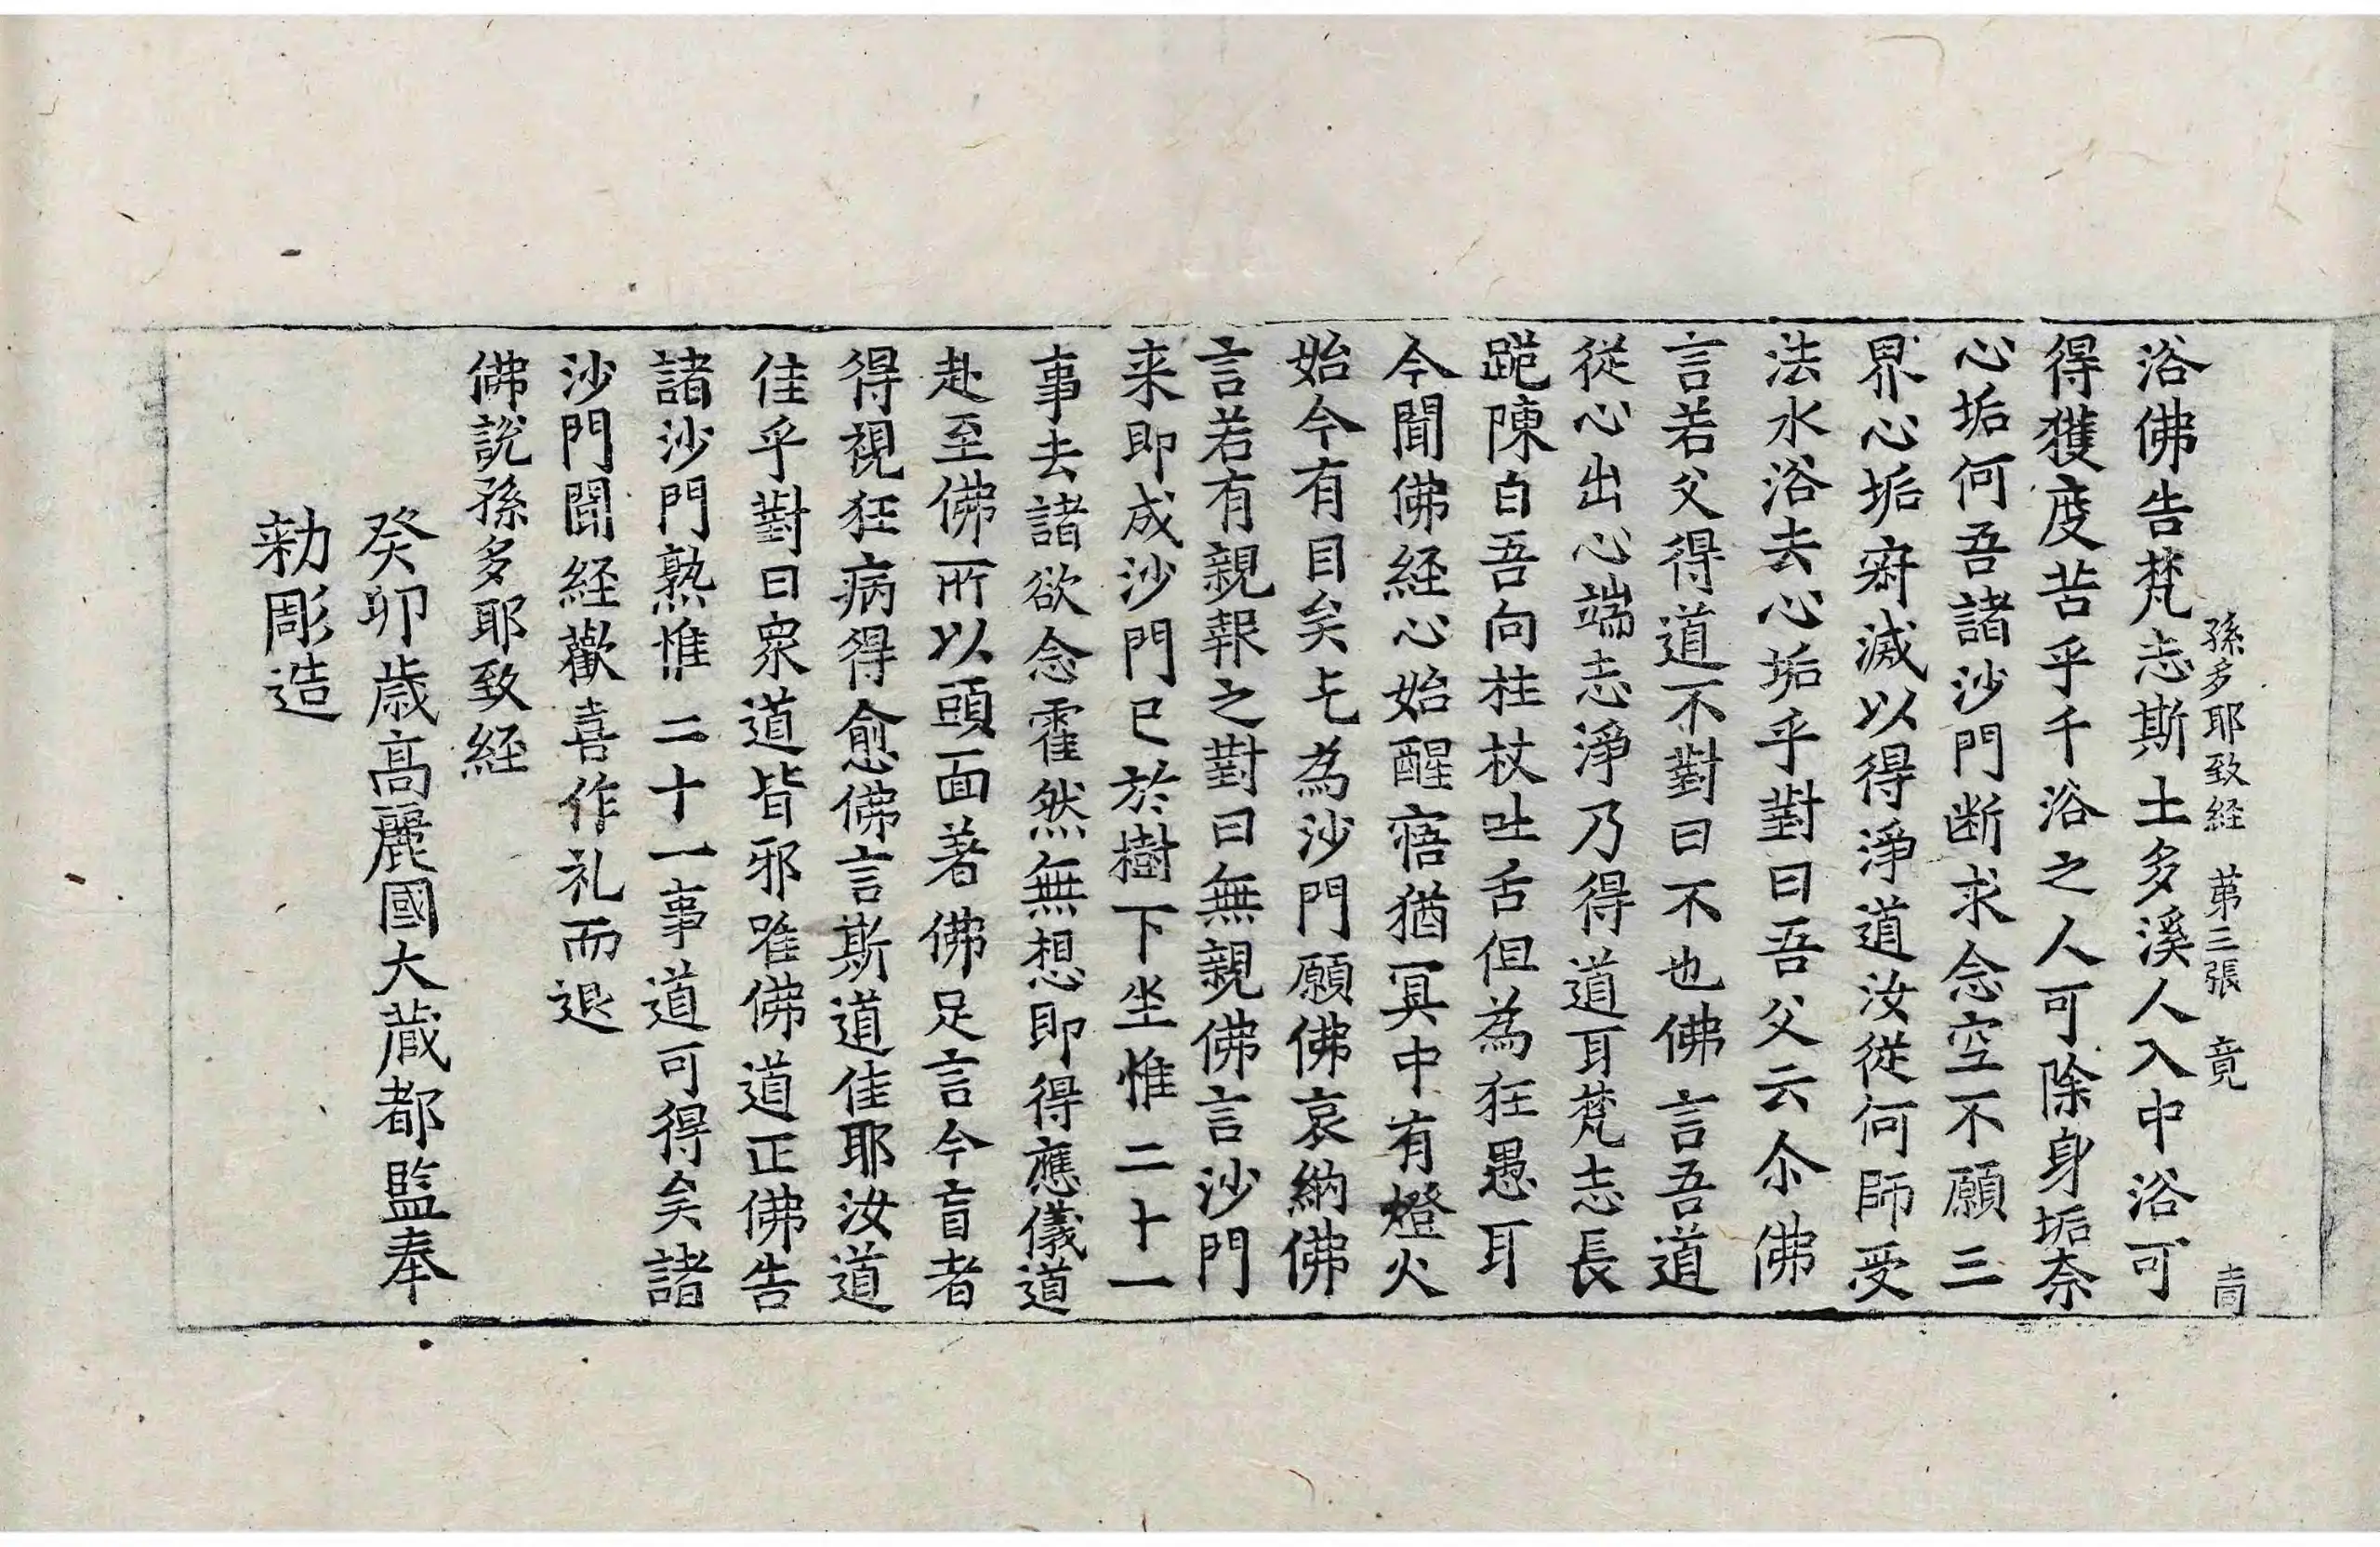 孫多耶致経 第三張 竟
浴佛告梵志斯土多溪人入中浴可
得獲度苦乎千浴之人可除身垢奈
心垢何吾諸沙門断求念空不願三
界心垢𡨋滅以得淨道汝從何師受
法水浴去心垢乎對曰吾父云尒佛
言若父得道不對曰不也佛言吾道
從心出心端志淨乃得道耳梵志長
跪陳白吾向柱杖吐舌但為狂愚耳
今聞佛経心始醒寤猶冥中有燈火
始今有目矣乞為沙門願佛哀納佛
言若有親報之對曰無親佛言沙門
来即成沙門已於樹下坐惟二十一
事去諸欲念霍然無想即得應儀道
赴至佛所以頭面著佛足言今盲者
得視狂病得愈佛言斯道佳耶汝道
佳乎對曰衆道皆邪唯佛道正佛告
諸沙門熟惟二十一事道可得矣諸
沙門聞経歡喜作礼而退
佛說孫多耶致経
癸卯歲高麗國大蔵都監奉
勅彫造